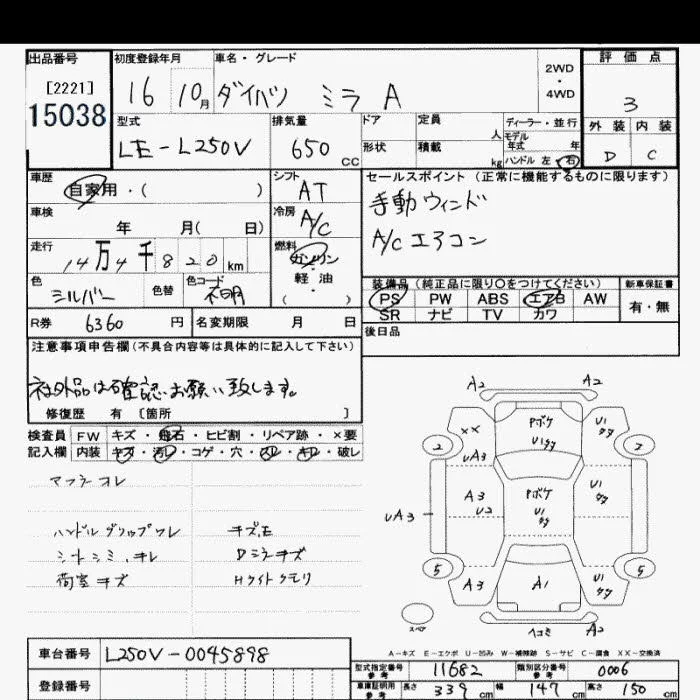 出品番号
[2221]
15038
初度登録年月
16 10月
車名・グレード
ダイハツ ミラ A
2WD
・
4WD
評価点
3
外装 内装
D C
型式
LE-L250V
排気量
650 CC
ドア
定員 人
形状
積載 kg
ディーラー・並行
モデル
年式 年
ハンドル 左・右
車歴
自家用・( )
シフト
AT
セールスポイント(正常に機能するものに限ります)
手動ウィンド
A/C エアコン
車検
年 月( 日)
冷房
A/C
走行
14万4千820km
燃料
ガソリン
・
軽油
・
( )
色
シルバー
色替
色コード
不明
装備品(純正品に限り○をつけてください)
PS PW ABS エアB AW
SR ナビ TV カワ
新車保証書
有・無
R券 6360円
名変期限 月 日
後日品
注意事項申告欄(不具合内容等は具体的に記入して下さい)
社外品は確認お願い致します。
修復歴 有 〔箇所 〕
検査員
記入欄
FW キズ・飛石・ヒビ割・リペア跡・×要
内装 キズ・汚レ・コゲ・穴・スレ・キレ・破レ
マフラーオレ
ハンドルグリップワレ
シートシミ、キレ
荷室キズ
キズE
Dミラーキズ
Hライトクモリ
A2 A2
XX
Pボケ
U1
2 2
UA3
A3
U2
Pボケ
U1
U1
UA3
5 5
A3
A1
U1
スペア
ヘコミ A2
車台番号 L250V-0045898
登録番号
A-キズ E-エクボ U-凹み W-補修跡 S-サビ C-腐食 XX-交換済
型式指定番号
参考
11682
類別区分番号
参考
0006
車庫証明用
参考
長さ 339cm 幅 147cm 高さ 150cm